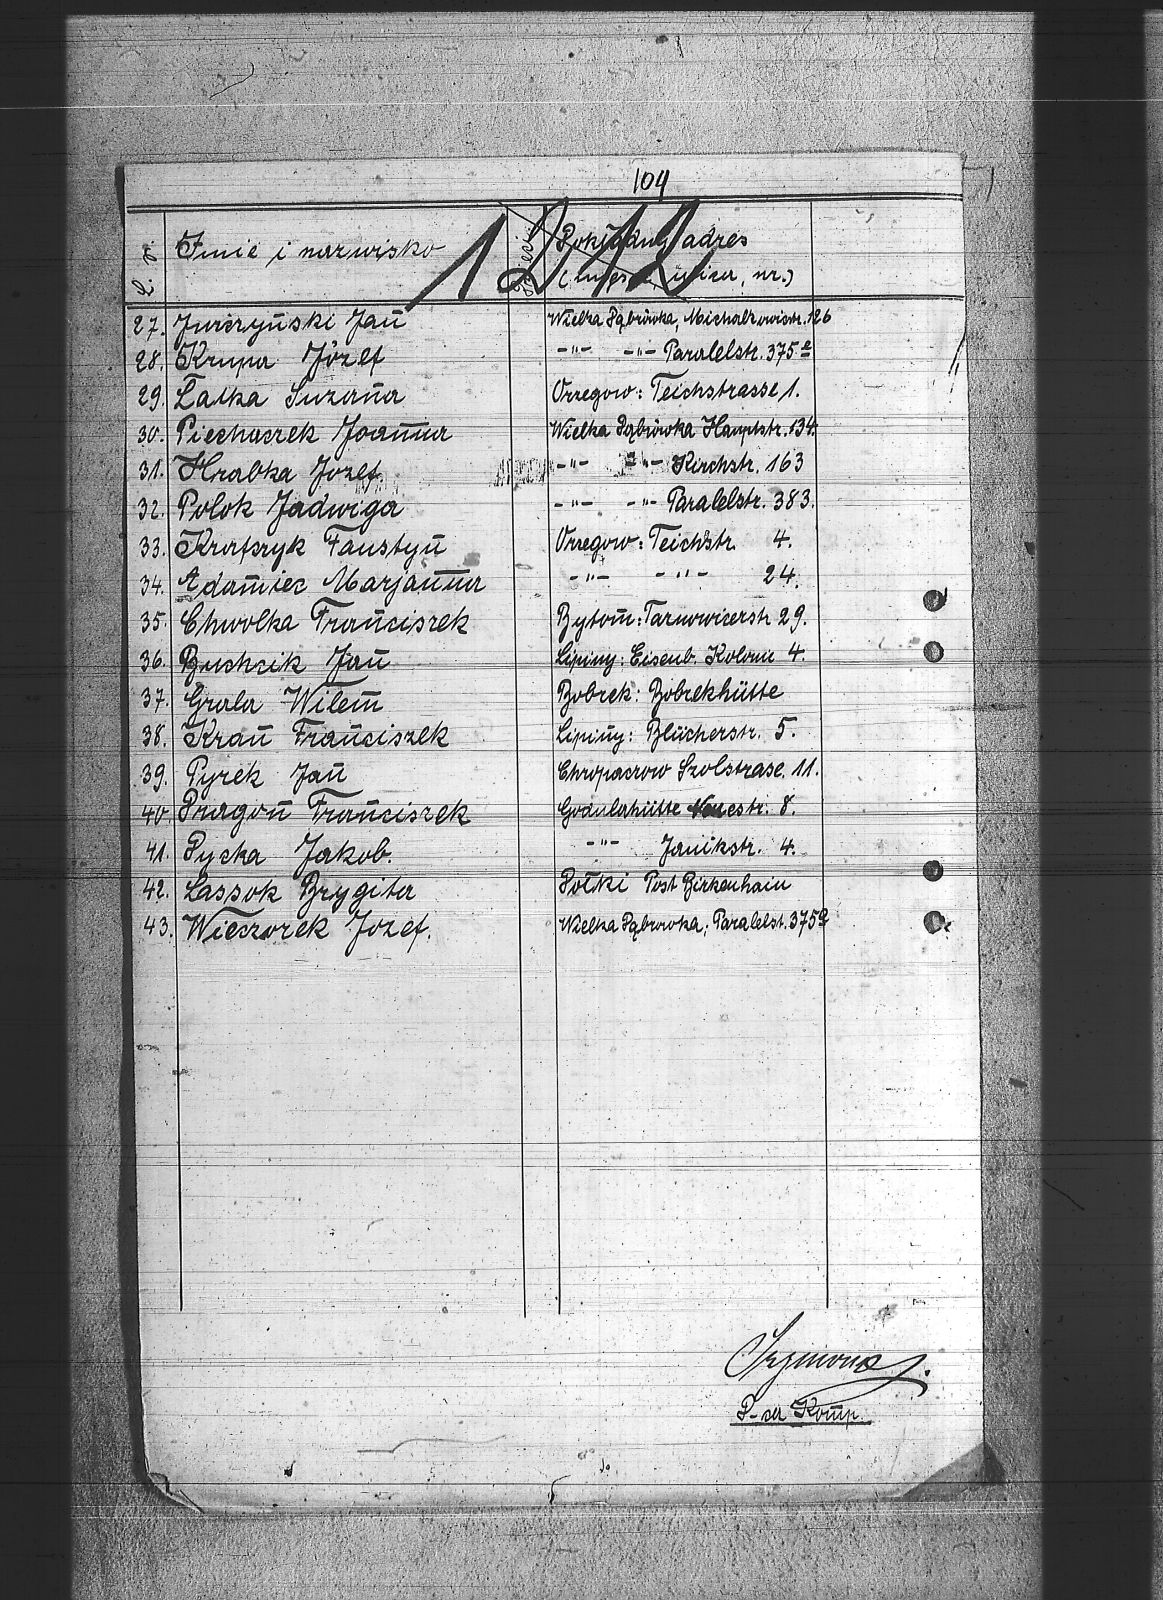 104
1212
L. p. Imie i nazwisko Dokładny adres
ulica, nr.)
27. Jurczyński Jan Wielka Dąbrówka, Michalkowistr. 126
28. Krupa Józef -"- -"- Paralelstr. 375a
29. Łatka Zuzana Orzegow: Teichstrasse 1.
30. Piechaczek Joanna Wielka Dąbrówka Hauptstr. 134.
31. Hrabka Józef -"- -"- Kirchstr. 163
32. Polok Jadwiga -"- -"- Paralelstr. 383.
33. Faustyn Orzegow: Teichstr. 4.
34. Adamiec Marjanna -"- -"- 24.
35. Chwolka Franciszek Bytom: Tarnowicerstr 29.
36. Buchcik Jan Lipiny: Eisenb. Kolonie 4.
37. Grala Wilem Bobrek: Bobrekhütte
38. Kran Franciszek Lipiny: Blücherstr. 5.
39. Pyrek Jan Chropaczow Szolstrase. 11.
40. Dragon Franciszek Godulahütte Neuestr. 8.
41. Pycka Jakob. -"- Janikstr. 4.
42. Lassok Brygita Dołki Post Birkenhain
43. Wieczorek Jozef. Wielka Dąbrowka; Paralelst. 375a
D-ca Komp.